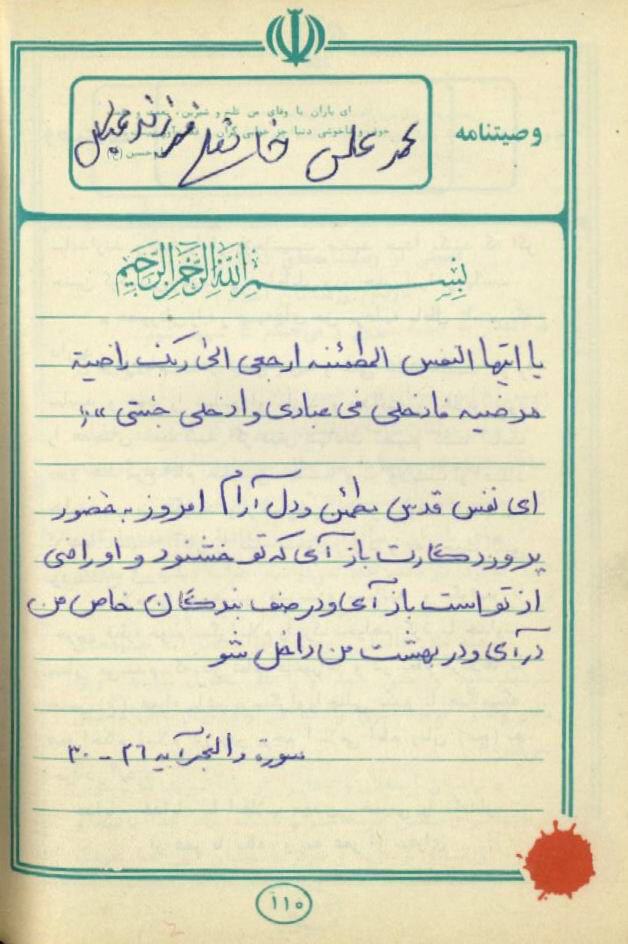 وصیتنامه
ای یاران با وفای من تلخ و شیرین،
دنیا
حسین (ع)
محمد علی فرزند
بسم الله الرحمن الرحیم
یا ایتها النفس المطمئنه ارجعی الی ربک راضیة
مرضیه فادخلی فی عبادی وادخلی جنتی »
ای نفس قدسی مطمئن و دل آرام امروز به حضور
پروردگارت باز آی که تو خشنود و او راضی
از تو است باز آی و در صف بندگان خاص من
در آی و در بهشت من داخل شو
سورة والفجر آیه ۲۶ - ۳۰
۱۱۰